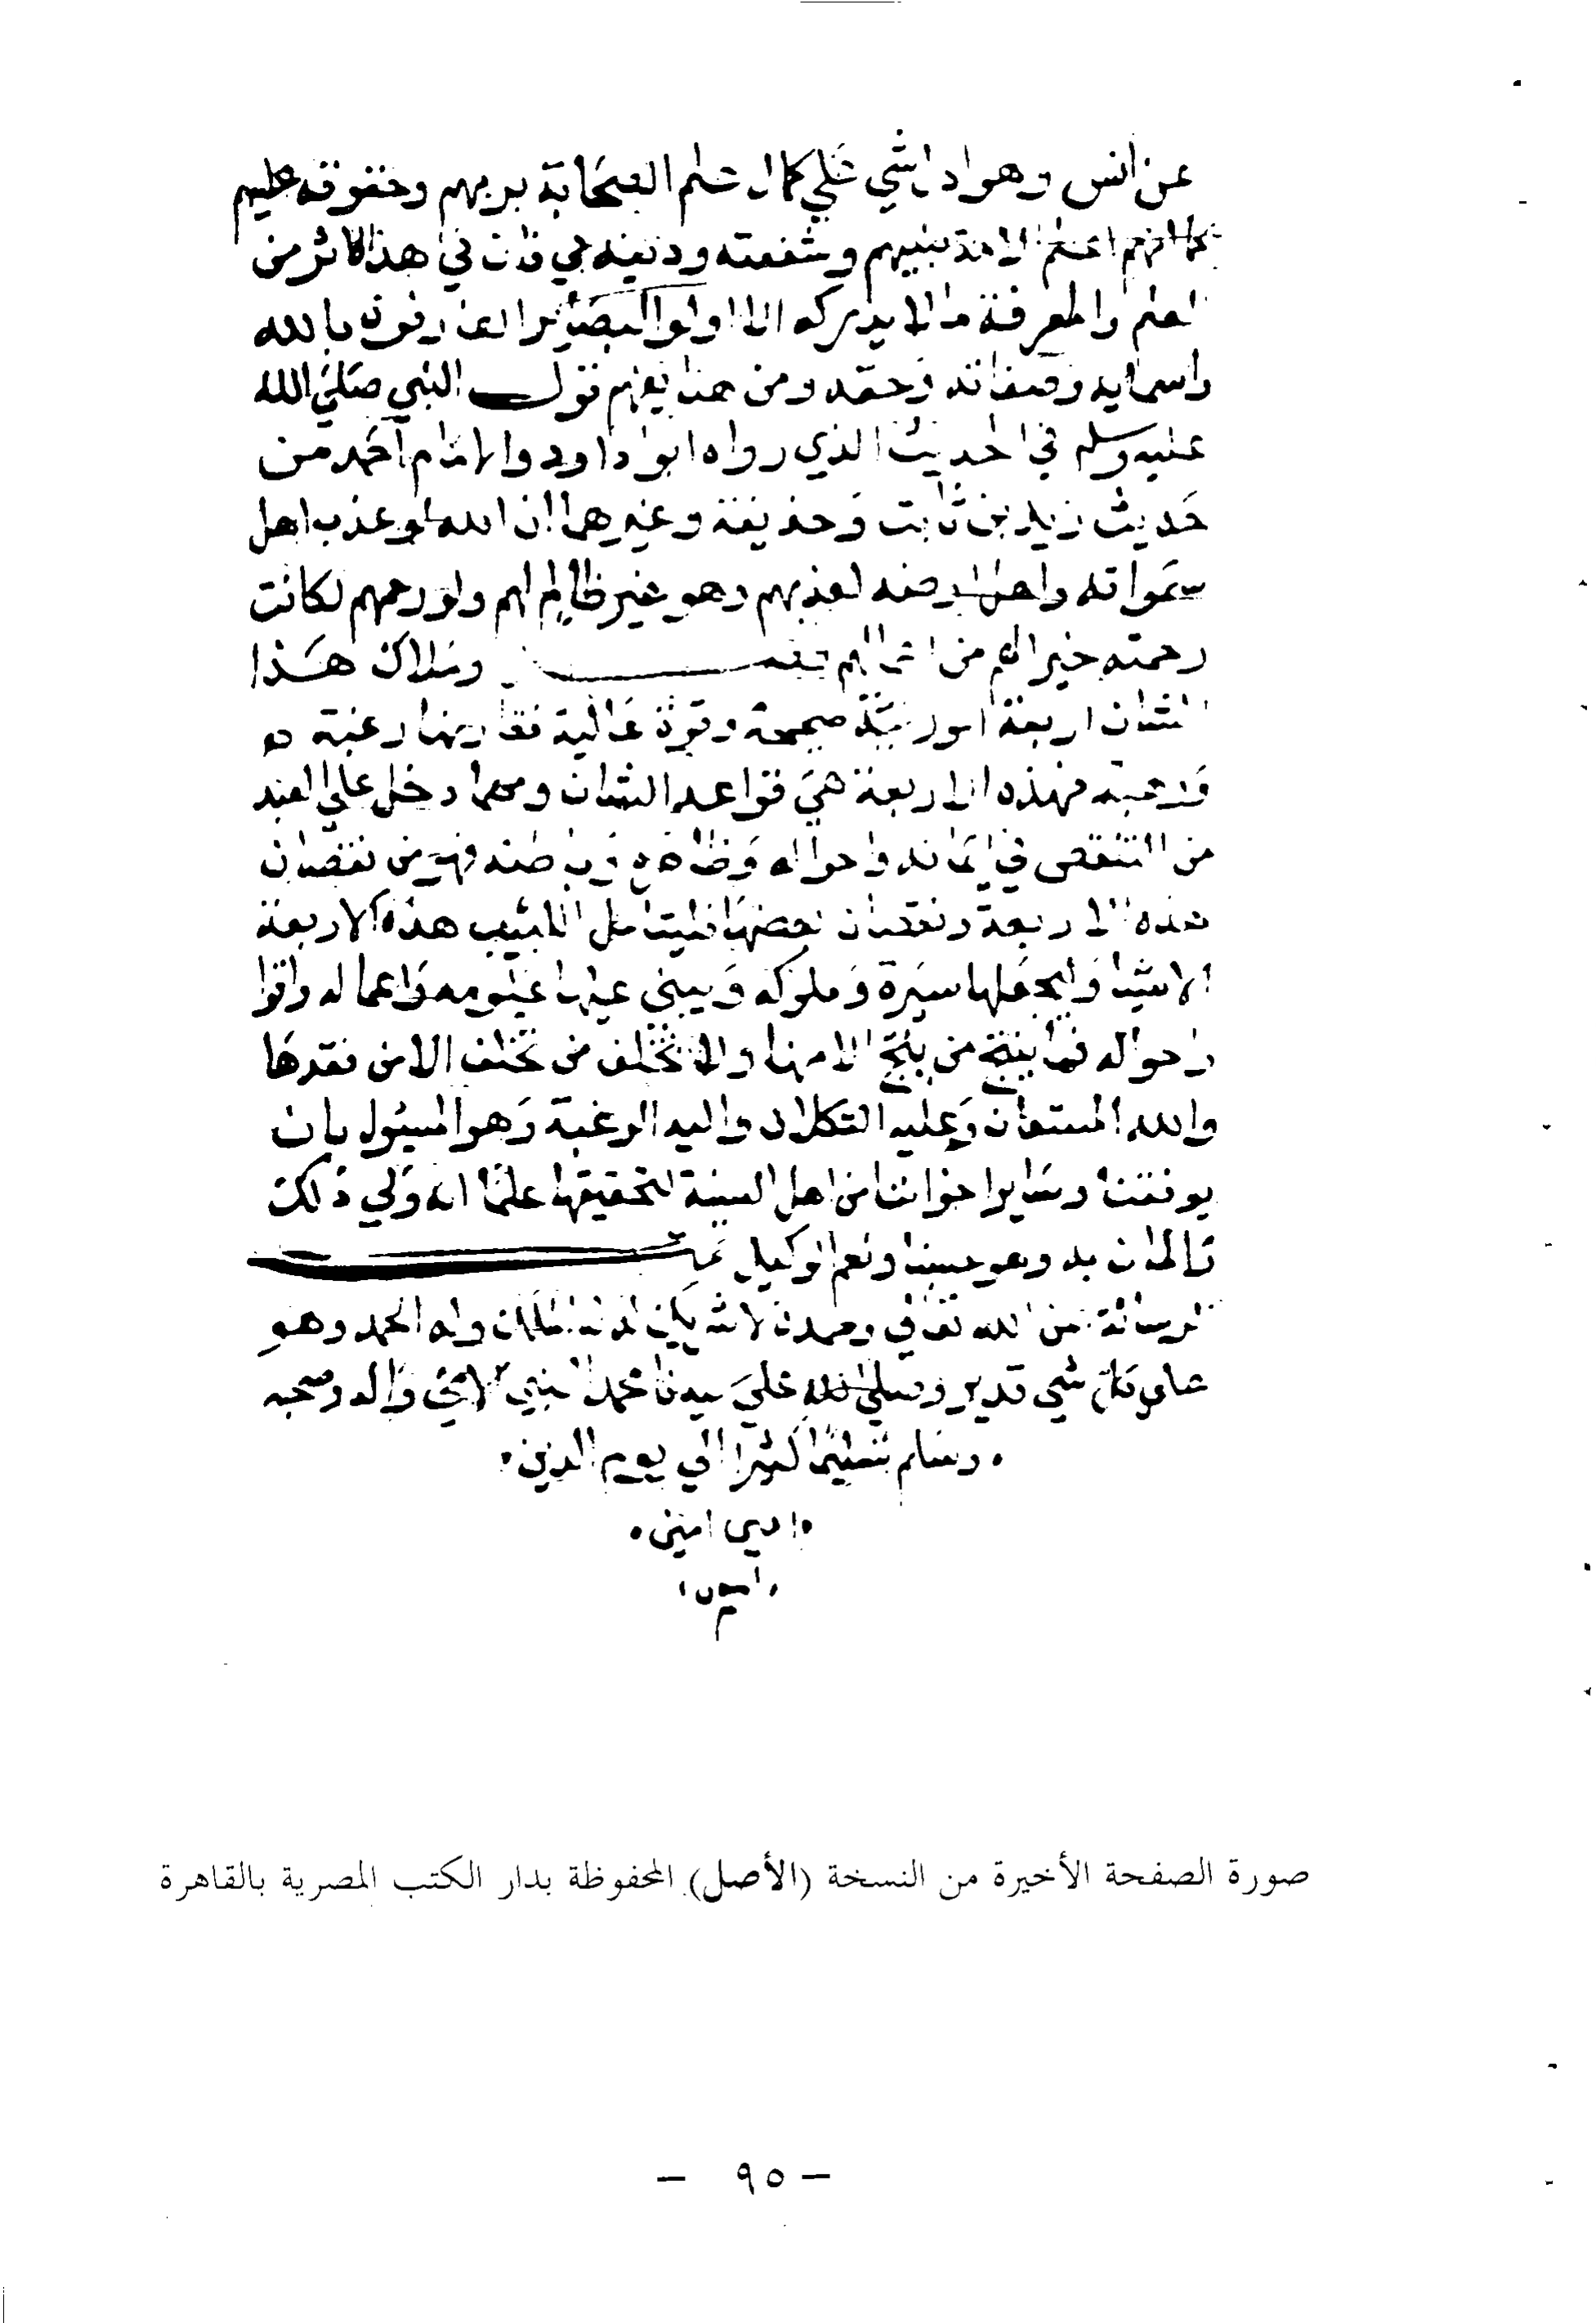 عن انس وهو ادل شي علي كمال علم الصحابة بربهم وحقوقه عليهم
كما انهم اعلم الامة بنبيهم وسننه ودينه في هذا الاثر من
العلم والمعرفة ما لا يدركه الا اولوا البصائر العارفون بالله
واسمايه وصفاته وحقه ومن هنا يفهم قول النبي صلي الله
عليه وسلم في الحديث الذي رواه ابو داود والامام احمد من
حديث زيد بن ثابت وحذيفة وغيرهما ان الله لو عذب اهل
سمواته واهل ارضه لعذبهم وهو غير ظالم لهم ولو رحمهم لكانت
رحمته خيرا لهم من اعمالهم وملاك هذا
الشان اربعة امور نية صحيحة وقوة عالية تقارنهما رغبة
ورهبة فهذه الاربعة هي قواعد الشان ومهما دخل علي العبد
من النقص في ايمانه واحواله وظاهره وباطنه فهو من نقصان
هذه الاربعة ونقصان بعضها فليتامل اللبيب هذه الاربعة
الاشيا وليجعلها سيره وسلوكه ويبني عليها علومه واعماله واقوا
واحواله فما نتج من نتج الا منها ولا تخلف من تخلف الا من فقدها
والله المستعان وعليه التكلان واليه الرغبة وهو المسئول بان
يوفقنا وساير اخواننا من اهل السنة لتحقيقها علما انه ولي ذلك
والمان به وهو حسبنا ونعم الوكيل تمت
الرسالة الله وحده لا شريك له له الملك وله الحمد وهو
علي كل شي قدير وصلي الله علي سيدنا محمد النبي الامي واله وصحبه
وسلم تسليما كثيرا الي يوم الدين
امين امين
امين
صورة الصفحة الأخيرة من النسخة (الأصل) المحفوظة بدار الكتب المصرية بالقاهرة
— ٩٥ —